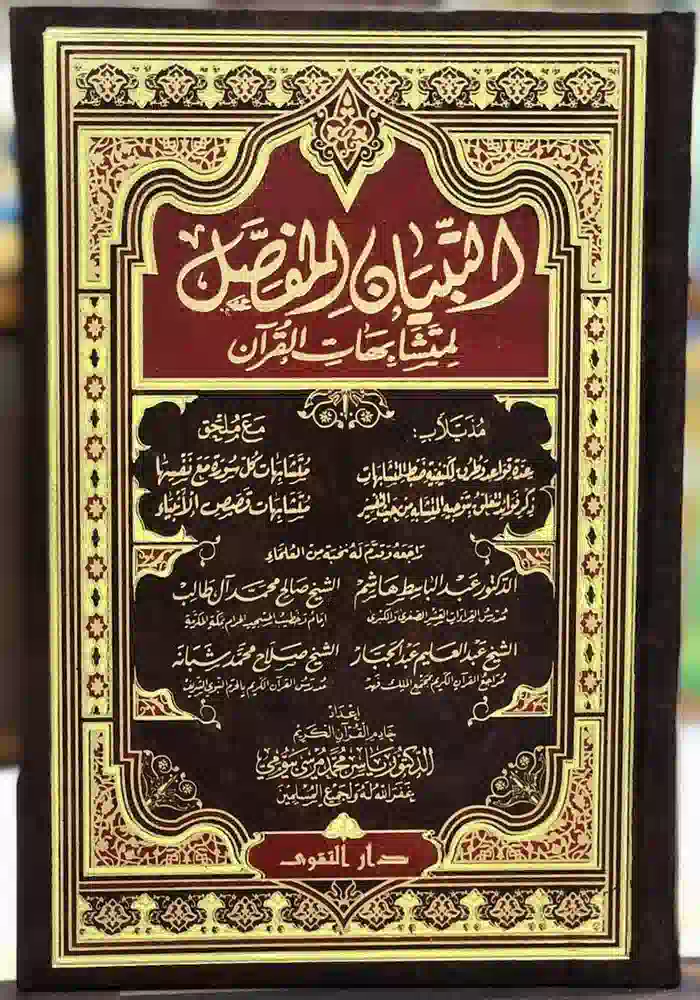 التبيان المفصل
لمتشابهات القرآن
مذيلاً ب:
عدة قواعد وطرق لكيفية ضبط المتشابهات
ذكر فوائد تتعلق بتوجيه المتشابه من حيث التفسير
مع ملحق
متشابهات كل سورة مع نفسها
متشابهات قصص الأنبياء
راجعه وقدم له نخبة من العلماء
الدكتور عبد الباسط هاشم
مدرس القراءات العشر الصغرى والكبرى
الشيخ صالح محمد آل طالب
إمام وخطيب المسجد الحرام بمكة المكرمة
الشيخ عبد العليم عبد الجبار
مراجع القرآن الكريم بمجمع الملك فهد
الشيخ صلاح محمد شبانه
مدرس القرآن الكريم بالحرم النبوي الشريف
إعداد
خادم القرآن الكريم
الدكتور ياسر محمد مرسي بيومي
غفر الله له ولجميع المسلمين
دار التقوى